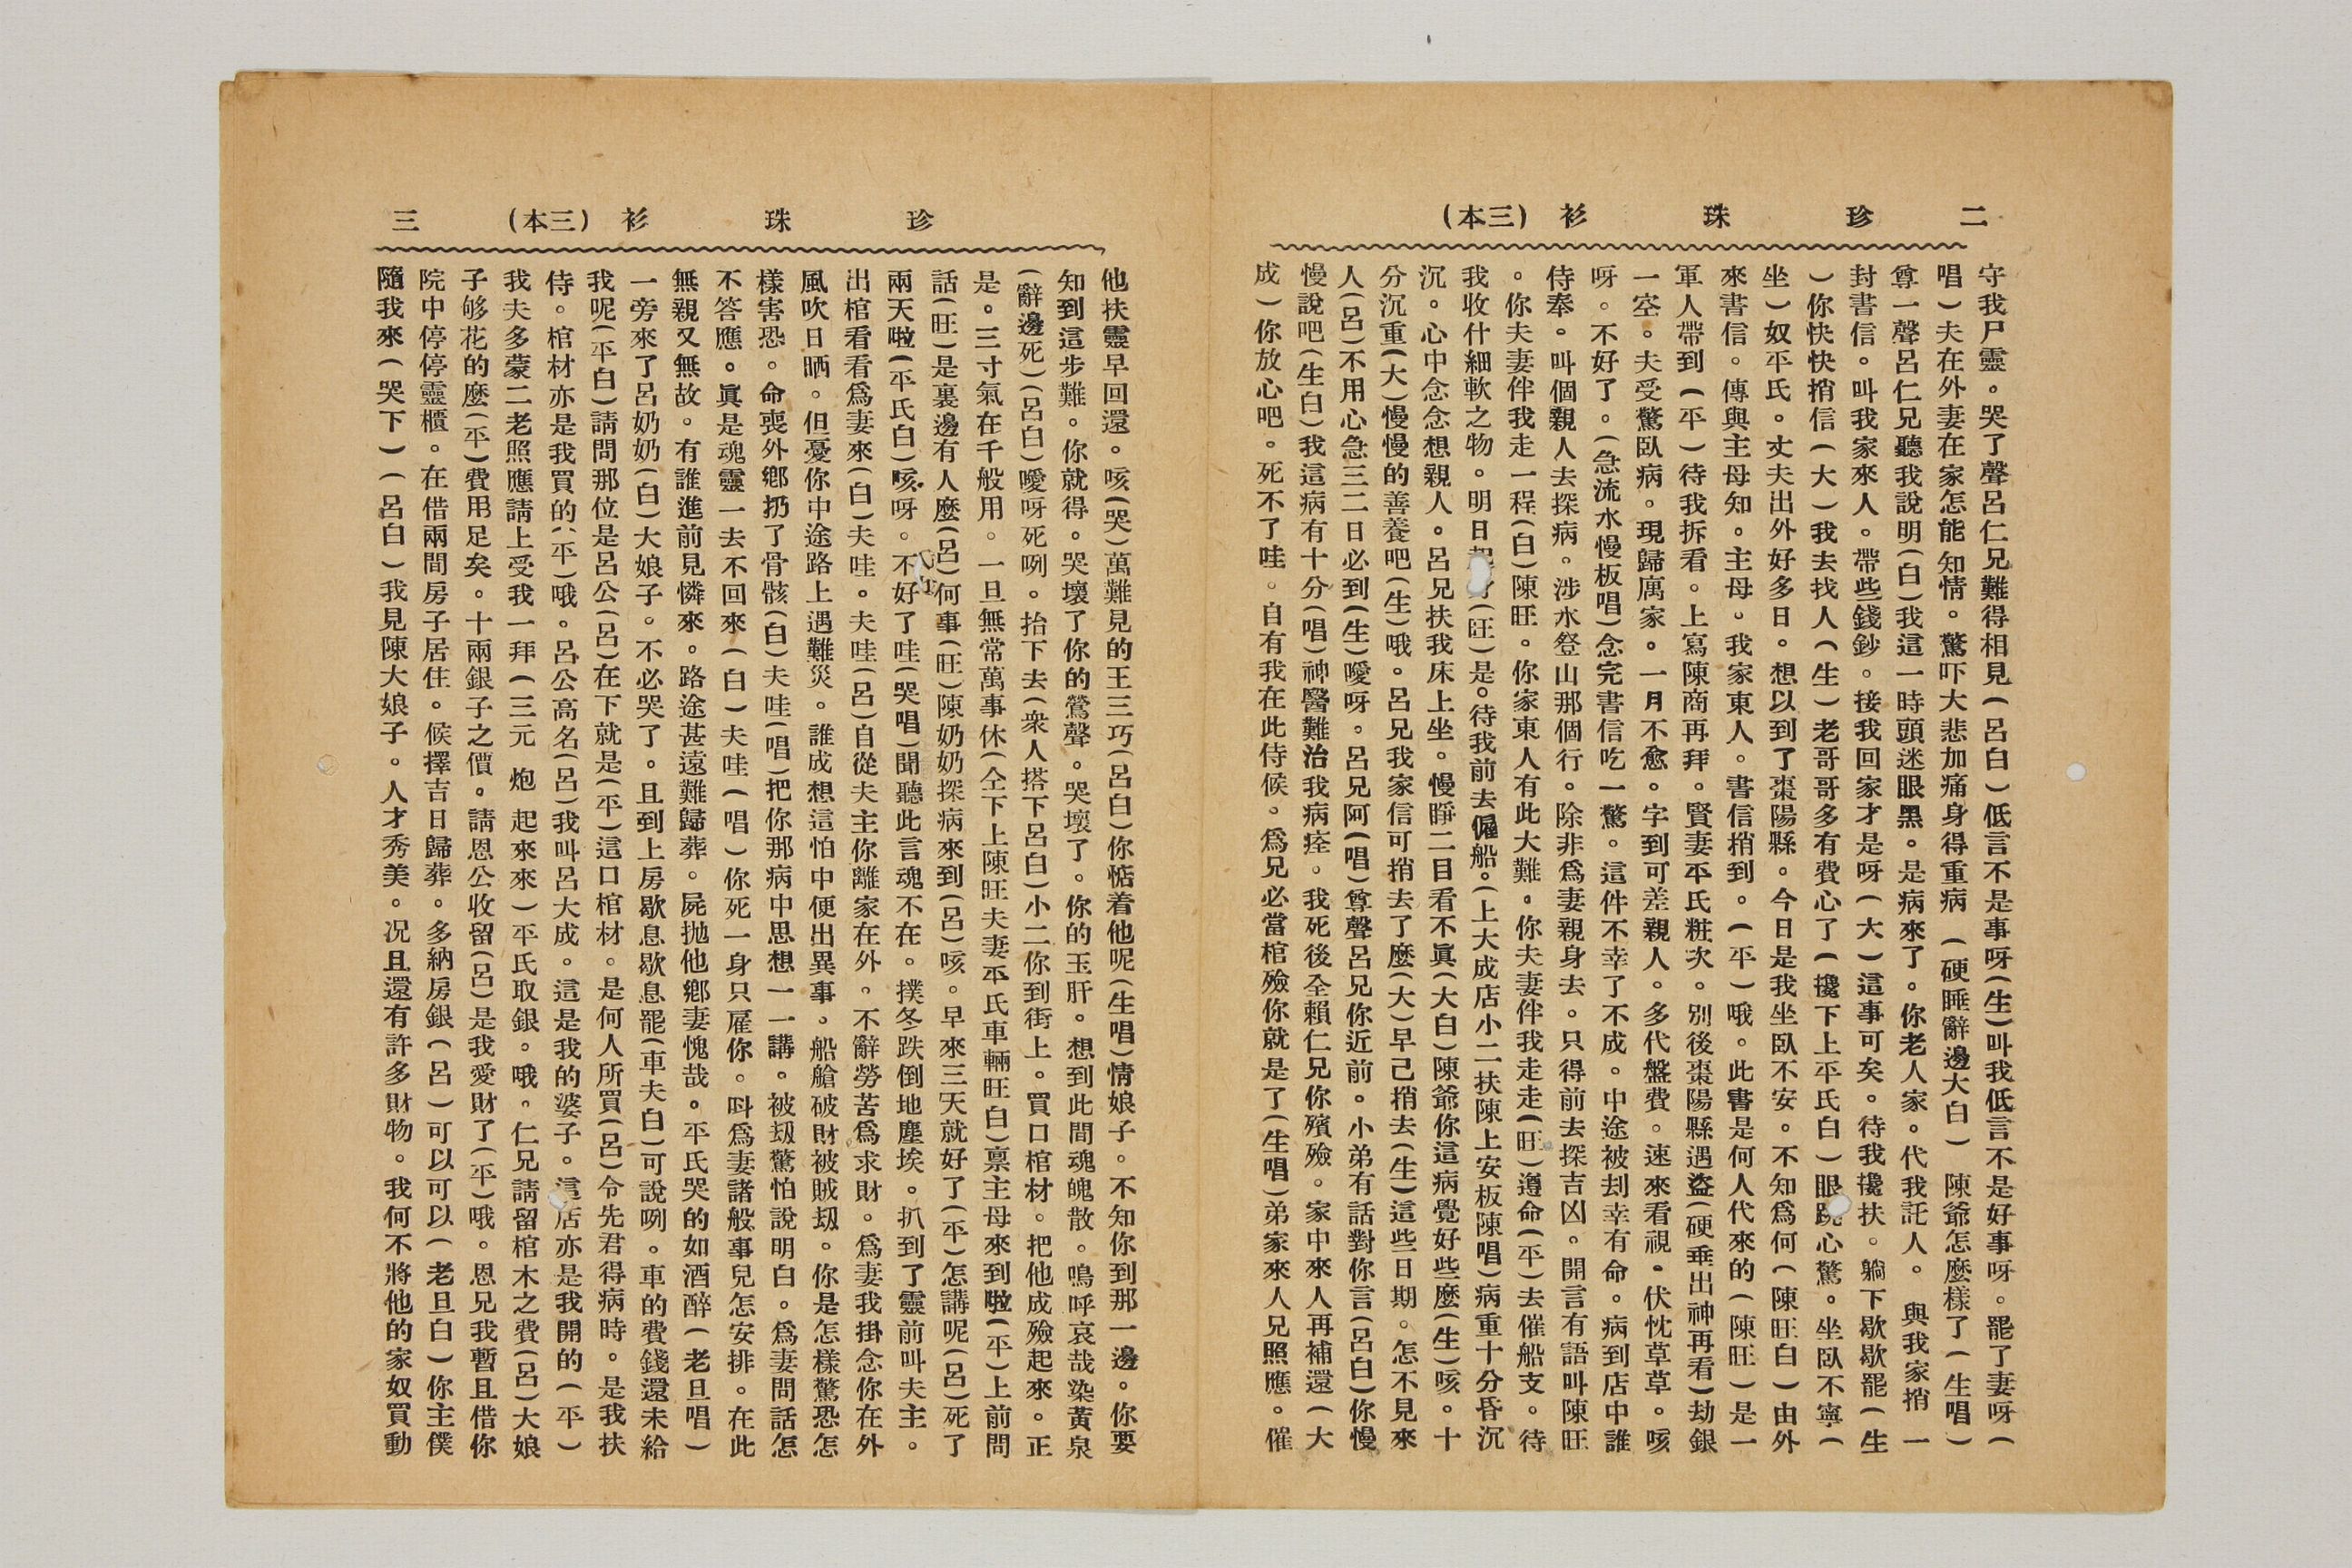 二 珍珠衫(三本)
守我尸靈。哭了聲呂仁兄難得相見(呂白)低言不是事呀(生)叫我低言不是好事呀。罷了妻呀(
唱)夫在外妻在家怎能知情。驚吓大悲加痛身得重病 (硬睡辭邊大白) 陳爺怎麼樣了(生唱)
尊一聲呂仁兄聽我說明(白)我這一時頭迷眼黑。是病來了。你老人家。代我託人。與我家捎一
封書信。叫我家來人。帶些錢鈔。接我回家才是呀(大)這事可矣。待我攙扶。躺下歇歇罷(生
)你快快捎信(大)我去找人(生)老哥哥多有費心了(攙下上平氏白)眼跳心驚。坐臥不寧(
坐)奴平氏。丈夫出外好多日。想以到了棗陽縣。今日是我坐臥不安。不知爲何(陳旺白)由外
來書信。傳與主母知。主母。我家東人。書信捎到。(平)哦。此書是何人代來的(陳旺)是一
軍人帶到(平)待我拆看。上寫陳商再拜。賢妻平氏粧次。別後棗陽縣遇盜(硬垂出神再看)劫銀
一空。夫受驚臥病。現歸寓家。一月不愈。字到可差親人。多代盤費。速來看視。伏忱草草。咳
呀。不好了。(急流水慢板唱)念完書信吃一驚。這件不幸了不成。中途被刦幸有命。病到店中誰
侍奉。叫個親人去探病。涉水登山那個行。除非爲妻親身去。只得前去探吉凶。開言有語叫陳旺
。你夫妻伴我走一程(白)陳旺。你家東人有此大難。你夫妻伴我走走(旺)遵命(平)去催船支。待
我收什細軟之物。明日起(旺)是。待我前去僱船。(上大成店小二扶陳上安板陳唱)病重十分昏沉
沉。心中念念想親人。呂兄扶我床上坐。慢睜二目看不眞(大白)陳爺你這病覺好些麼(生)咳。十
分沉重(大)慢慢的善養吧(生)哦。呂兄我家信可捎去了麼(大)早己捎去(生)這些日期。怎不見來
人(呂)不用心急三二日必到(生)嗳呀。呂兄阿(唱)尊聲呂兄你近前。小弟有話對你言(呂白)你慢
慢說吧(生白)我這病有十分(唱)神醫難治我病痊。我死後全賴仁兄你殯殮。家中來人再補還(大
成)你放心吧。死不了哇。自有我在此侍候。爲兄必當棺殮你就是了(生唱)弟家來人兄照應。催
珍珠衫(三本) 三
他扶靈早回還。咳(哭)萬難見的王三巧(呂白)你惦着他呢(生唱)情娘子。不知你到那一邊。你要
知到這步難。你就得。哭壞了你的鶯聲。哭壞了。你的玉肝。想到此間魂魄散。鳴呼哀哉染黃泉
(辭邊死)(呂白)嗳呀死咧。抬下去(衆人搭下呂白)小二你到街上。買口棺材。把他成殮起來。正
是。三寸氣在千般用。一旦無常萬事休(仝下上陳旺夫妻平氏車輛旺白)禀主母來到啦(平)上前問
話(旺)是裏邊有人麼(呂)何事(旺)陳奶奶探病來到(呂)咳。早來三天就好了(平)怎講呢(呂)死了
兩天啦(平氏白)咳呀。不好了哇(哭唱)聞聽此言魂不在。撲冬跌倒地塵埃。扒到了靈前叫夫主。
出棺看看爲妻來(白)夫哇。夫哇(呂)自從夫主你離家在外。不辭勞苦爲求財。爲妻我掛念你在外
風吹日晒。但憂你中途路上遇難災。誰成想這怕中便出異事。船艙破財被賊刼。你是怎樣驚恐怎
樣害恐。命喪外鄉扔了骨骸(白)夫哇(唱)把你那病中思想一一講。被刼驚怕說明白。爲妻問話怎
不答應。眞是魂靈一去不回來(白)夫哇(唱)你死一身只雇你。呌爲妻諸般事兒怎安排。在此
無親又無故。有誰進前見憐來。路途甚遠難歸葬。屍抛他鄉妻愧哉。平氏哭的如酒醉(老旦唱)
一旁來了呂奶奶(白)大娘子。不必哭了。且到上房歇息歇息罷(車夫白)可說咧。車的費錢還未給
我呢(平白)請問那位是呂公(呂)在下就是(平)這口棺材。是何人所買(呂)令先君得病時。是我扶
侍。棺材亦是我買的(平)哦。呂公高名(呂)我叫呂大成。這是我的婆子。這店亦是我開的(平)
我夫多蒙二老照應請上受我一拜(三元 炮 起來來)平氏取銀。哦。仁兄請留棺木之費(呂)大娘
子够花的麼(平)費用足矣。十兩銀子之價。請恩公收留(呂)是我愛財了(平)哦。恩兄我暫且借你
院中停停靈櫃。在借兩間房子居住。候擇吉日歸葬。多納房銀(呂)可以可以(老旦白)你主僕
隨我來(哭下)(呂白)我見陳大娘子。人才秀美。况且還有許多財物。我何不將他的家奴買動